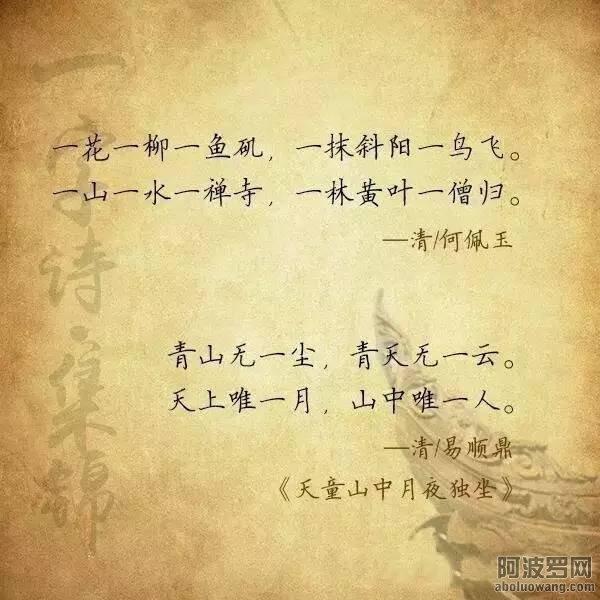 一字诗集锦
一花一柳一鱼矶，一抹斜阳一鸟飞。
一山一水一禅寺，一林黄叶一僧归。
—清/何佩玉
青山无一尘，青天无一云。
天上唯一月，山中唯一人。
—清/易顺鼎
《天童山中月夜独坐》
阿波罗网
aboluowang.com